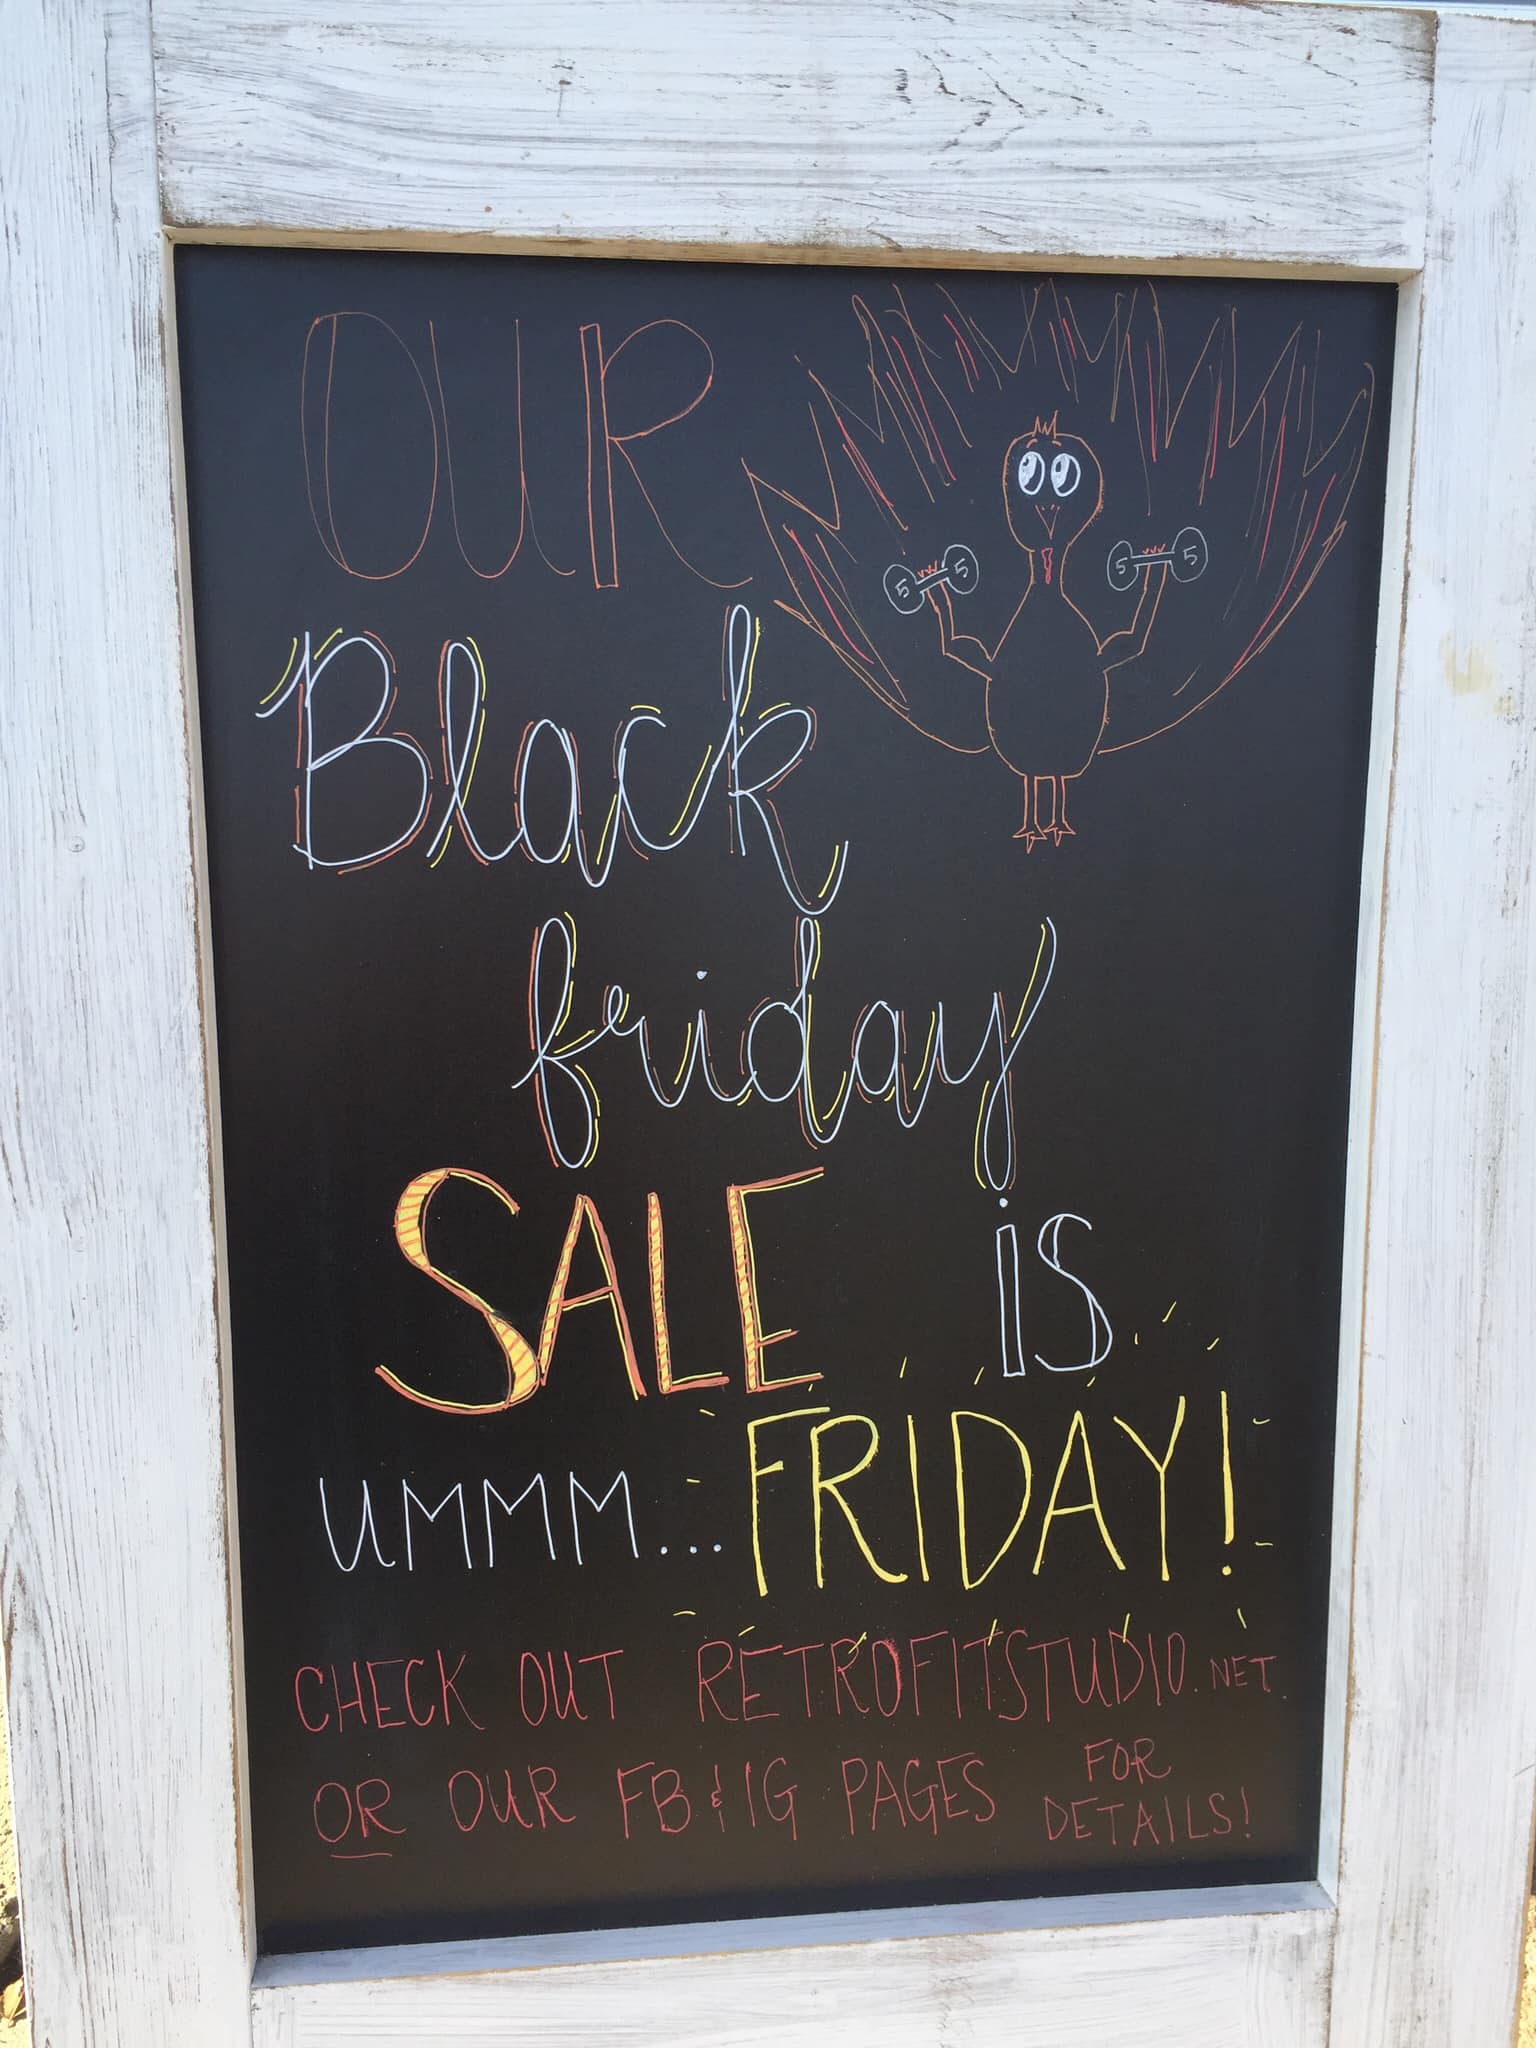 OUR
5 5 5 5
Black
friday
SALE is
UMMM... FRIDAY!
CHECK OUT RETROFITSTUDIO.NET
OR OUR FB & IG PAGES FOR
DETAILS!